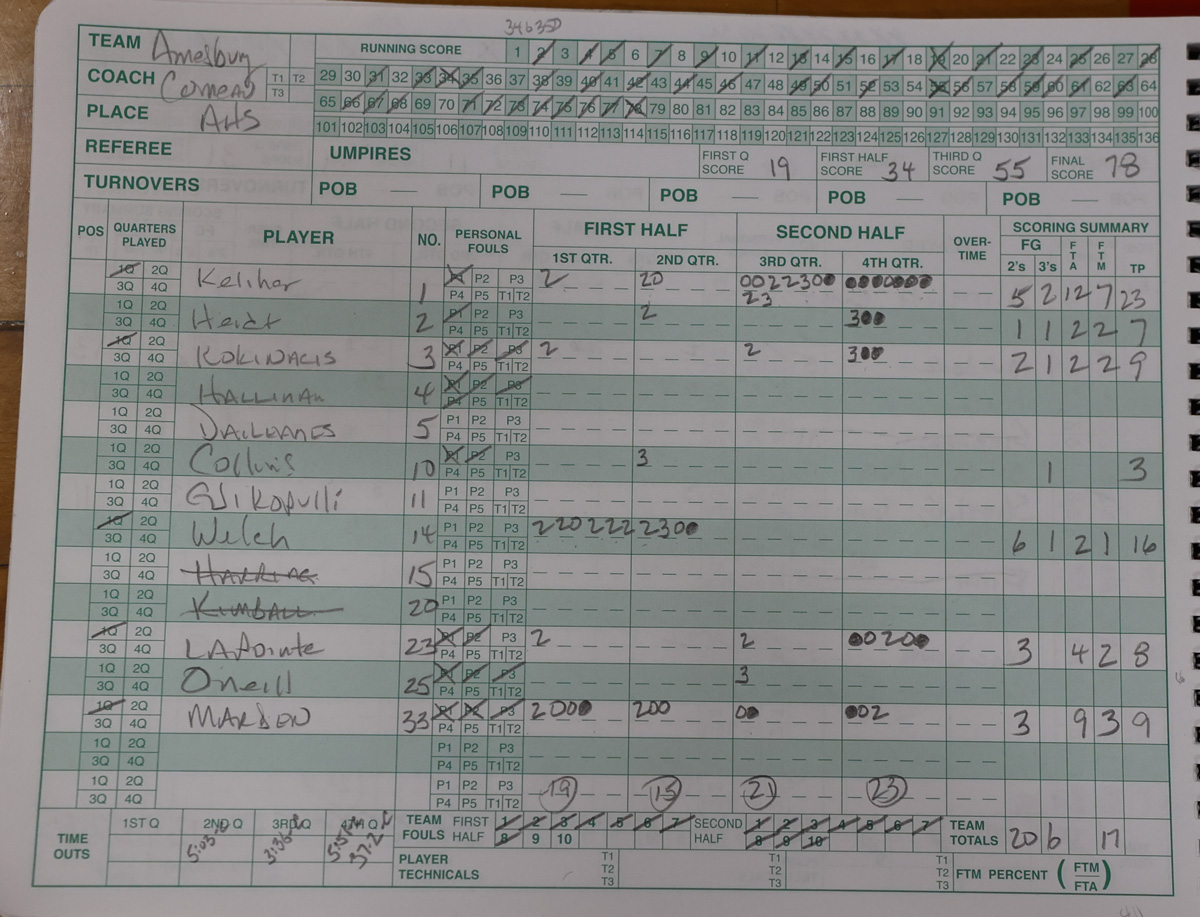 34635D
TEAM Amesbury RUNNING SCORE 1 2 3 4 5 6 7 8 9 10 11 12 13 14 15 16 17 18 19 20 21 22 23 24 25 26 27 28
COACH Comeau T1 T2 T3 29 30 31 32 33 34 35 36 37 38 39 40 41 42 43 44 45 46 47 48 49 50 51 52 53 54 55 56 57 58 59 60 61 62 63 64
65 66 67 68 69 70 71 72 73 74 75 76 77 78 79 80 81 82 83 84 85 86 87 88 89 90 91 92 93 94 95 96 97 98 99 100
PLACE AHS 101 102 103 104 105 106 107 108 109 110 111 112 113 114 115 116 117 118 119 120 121 122 123 124 125 126 127 128 129 130 131 132 133 134 135 136
REFEREE UMPIRES FIRST Q SCORE 19 FIRST HALF SCORE 34 THIRD Q SCORE 55 FINAL SCORE 78
TURNOVERS POB — POB — POB — POB — POB —
POS QUARTERS PLAYED PLAYER NO. PERSONAL FOULS FIRST HALF SECOND HALF OVER-TIME SCORING SUMMARY
1ST QTR. 2ND QTR. 3RD QTR. 4TH QTR. FG 2's 3's FTA FTM TP
1Q 2Q 3Q 4Q Keliher 1 P1 P2 P3 P4 P5 T1 T2 2 20 0022300 23 0000000 5 2 12 7 23
1Q 2Q 3Q 4Q Heidt 2 P1 P2 P3 P4 P5 T1 T2 2 300 1 1 2 2 7
1Q 2Q 3Q 4Q KOKINACIS 3 P1 P2 P3 P4 P5 T1 T2 2 2 300 2 1 2 2 9
1Q 2Q 3Q 4Q HALLINAN 4 P1 P2 P3 P4 P5 T1 T2
1Q 2Q 3Q 4Q DAILEANES 5 P1 P2 P3 P4 P5 T1 T2
1Q 2Q 3Q 4Q Collins 10 P1 P2 P3 P4 P5 T1 T2 3 1 3
1Q 2Q 3Q 4Q 11 P1 P2 P3 P4 P5 T1 T2
1Q 2Q 3Q 4Q Welch 14 P1 P2 P3 P4 P5 T1 T2 220222 2300 6 1 2 1 16
1Q 2Q 3Q 4Q 15 P1 P2 P3 P4 P5 T1 T2
1Q 2Q 3Q 4Q KIMBALL 20 P1 P2 P3 P4 P5 T1 T2
1Q 2Q 3Q 4Q LAPointe 23 P1 P2 P3 P4 P5 T1 T2 2 2 00200 3 4 2 8
1Q 2Q 3Q 4Q Oneill 25 P1 P2 P3 P4 P5 T1 T2 3
1Q 2Q 3Q 4Q MARDEN 33 P1 P2 P3 P4 P5 T1 T2 2000 200 00 002 3 9 3 9
1Q 2Q 3Q 4Q P1 P2 P3 P4 P5 T1 T2
1Q 2Q 3Q 4Q P1 P2 P3 P4 P5 T1 T2 19 15 21 23
TIME OUTS 1ST Q 2ND Q 3RD Q 4TH Q TEAM FOULS FIRST HALF 1 2 3 4 5 6 7 8 9 10 SECOND HALF 1 2 3 4 5 6 7 8 9 10 TEAM TOTALS 20 6 17
PLAYER TECHNICALS T1 T2 T3 T1 T2 T3 T1 T2 T3 FTM PERCENT (FTM FTA)